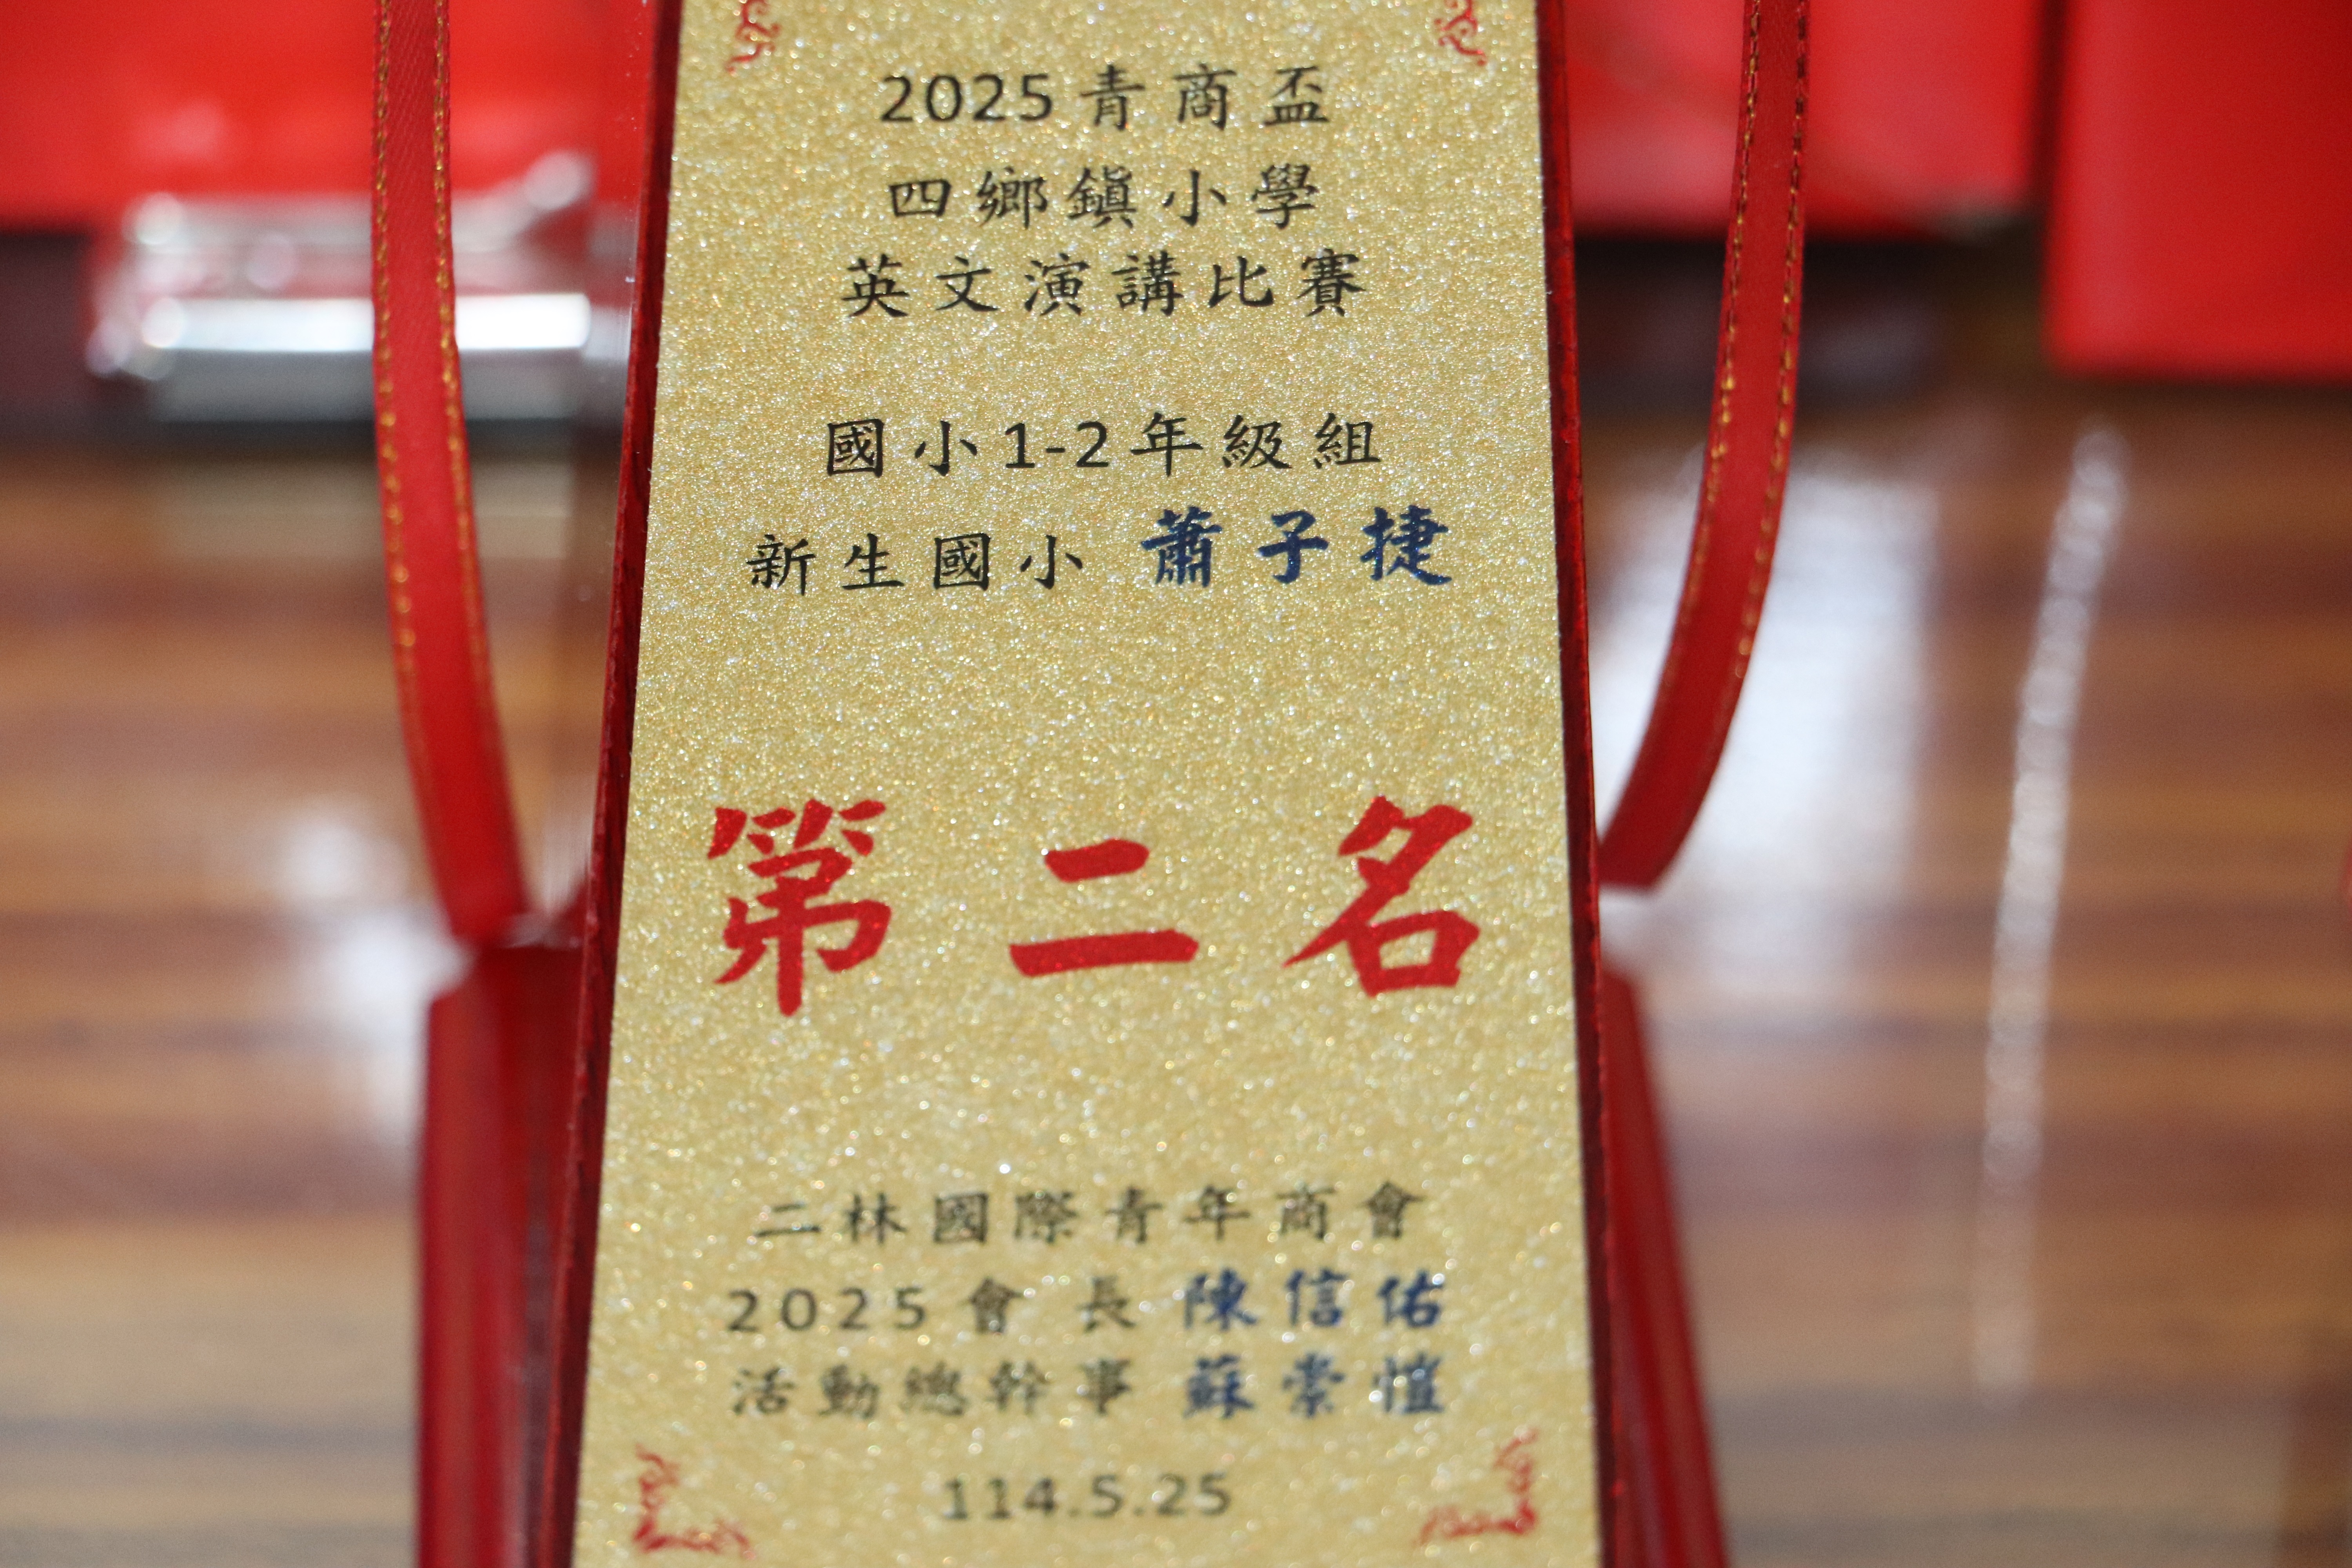 2025青商盃
四鄉鎮小學
英文演講比賽
國小1-2年級組
新生國小 蕭子捷
第二名
二林國際青年商會
2025會長 陳信佑
活動總幹事 蘇崇愷
114.5.25